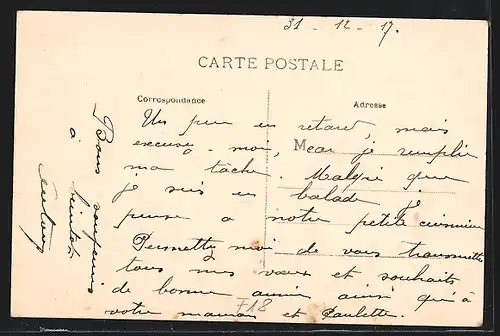 31 - 12 - 17.
CARTE POSTALE
Correspondance
Adresse
Un peu en retard, mais
excusez-moi, car je remplie
M
ma tâche. Malgré que
je suis en balade je
pense a notre petite cuisinière
Permettez moi de vous transmettre
tous mes vœux et souhaits
de bonne année ainsi qu'à
votre maman et Paulette.
Bons souvenirs
à bientôt
F18